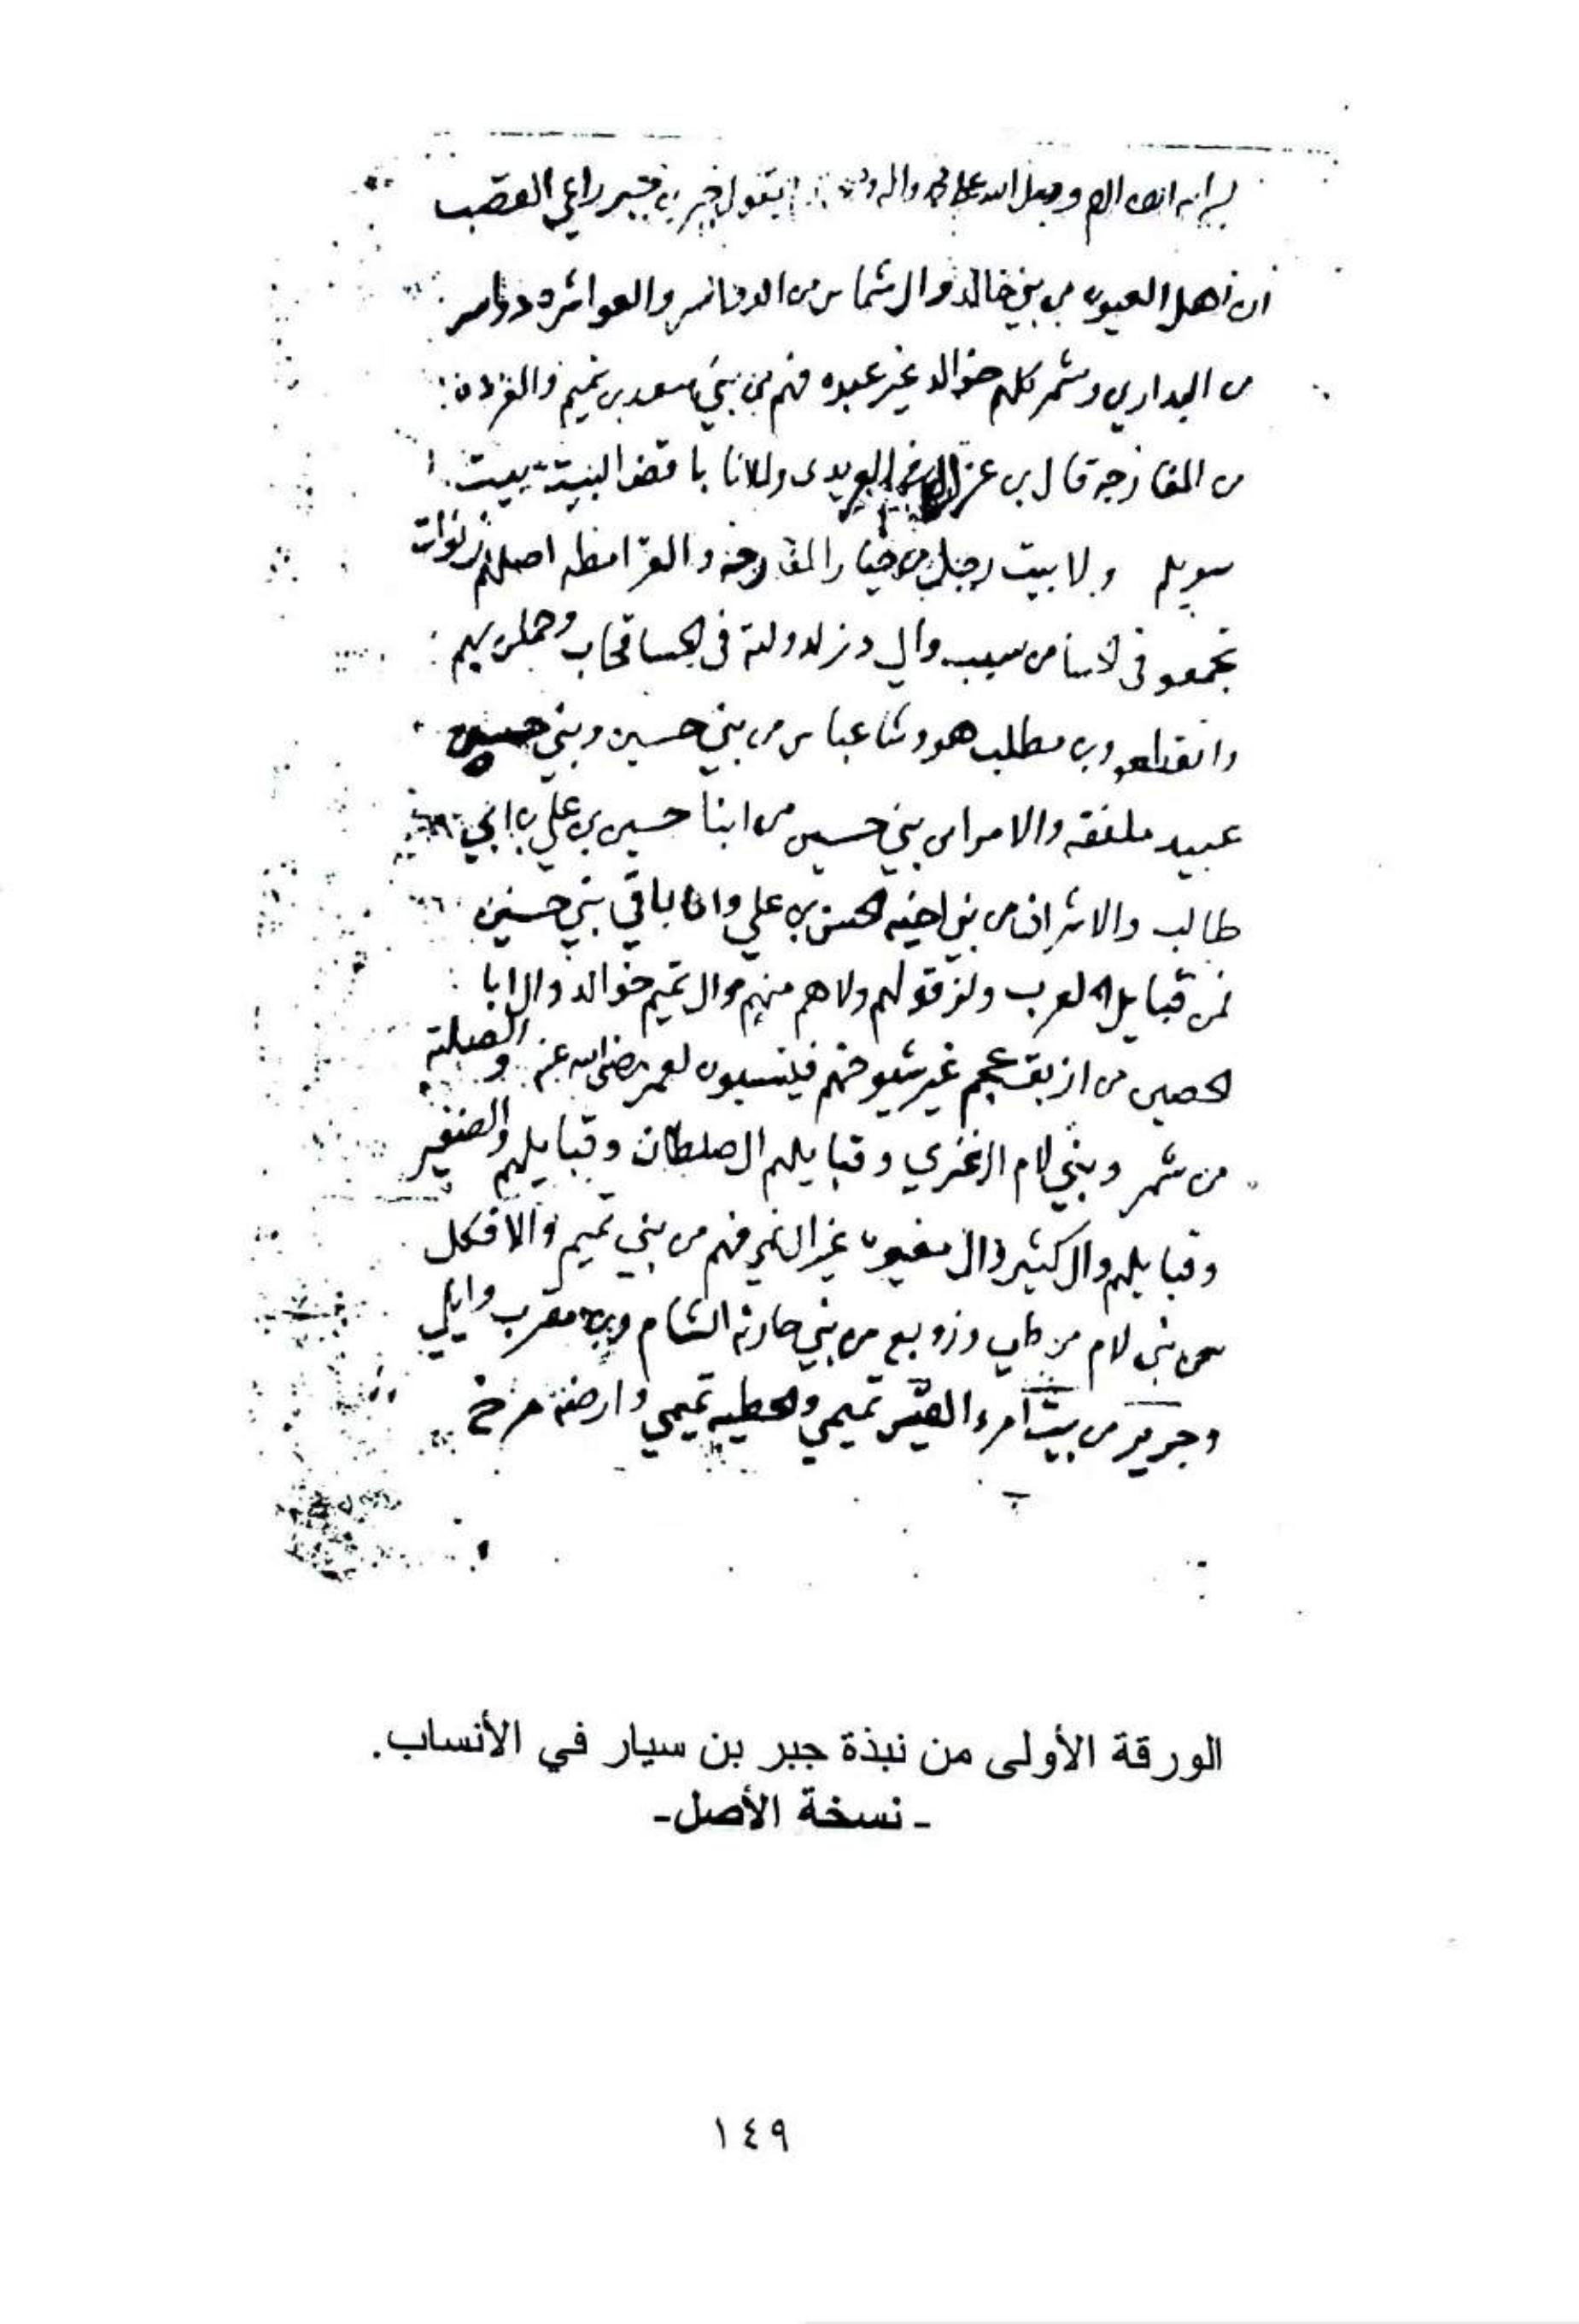 يقول جبر راعي القصب
ان اهل العيون من بني خالد وال شماس من الدواسر والعواشره دواسر
من البداري وشمر كلهم خوالد غير عبده فهم من بني سعد بن تميم والفرده
من المفارجه قال بن غزال ولانا با قضا البيت بيت
سويلم ولا بيت رجال من خيار المفارجه والقرامطه اصلهم
تجمعو في من سبب وال دولته في الحسا وحملت بهم
وانقطعوا وبن مطلب هو وشا عباس من بني حسين وبني حسين
عبيد ملفقه والامرا من بني حسين من ابنا حسين بن علي بن ابي
طالب والاشراف من بني اخيه الحسن بن علي واما باقي بني حسين
فمن قبايل العرب ولهم ولا هم منهم وال تميم خوالد وال ابا
الحصين من عجم غير شيوخهم فينسبون لعمر رضي الله عنه و
من شمر وبني لام الغزي وقبايلهم ال صلطان وقبايلهم والضفير
وقبايلهم وال كثير وال مغيره غير فهم من بني تميم والافكل
من بني لام وزوبع من بني حارثة الشام وبن مقرب وايلي
وجرير من بيت امرء القيس تميمي والحطيه تميمي وارضه مرخ
الورقة الأولى من نبذة جبر بن سيار في الأنساب.
ـ نسخة الأصل ـ
١٤٩